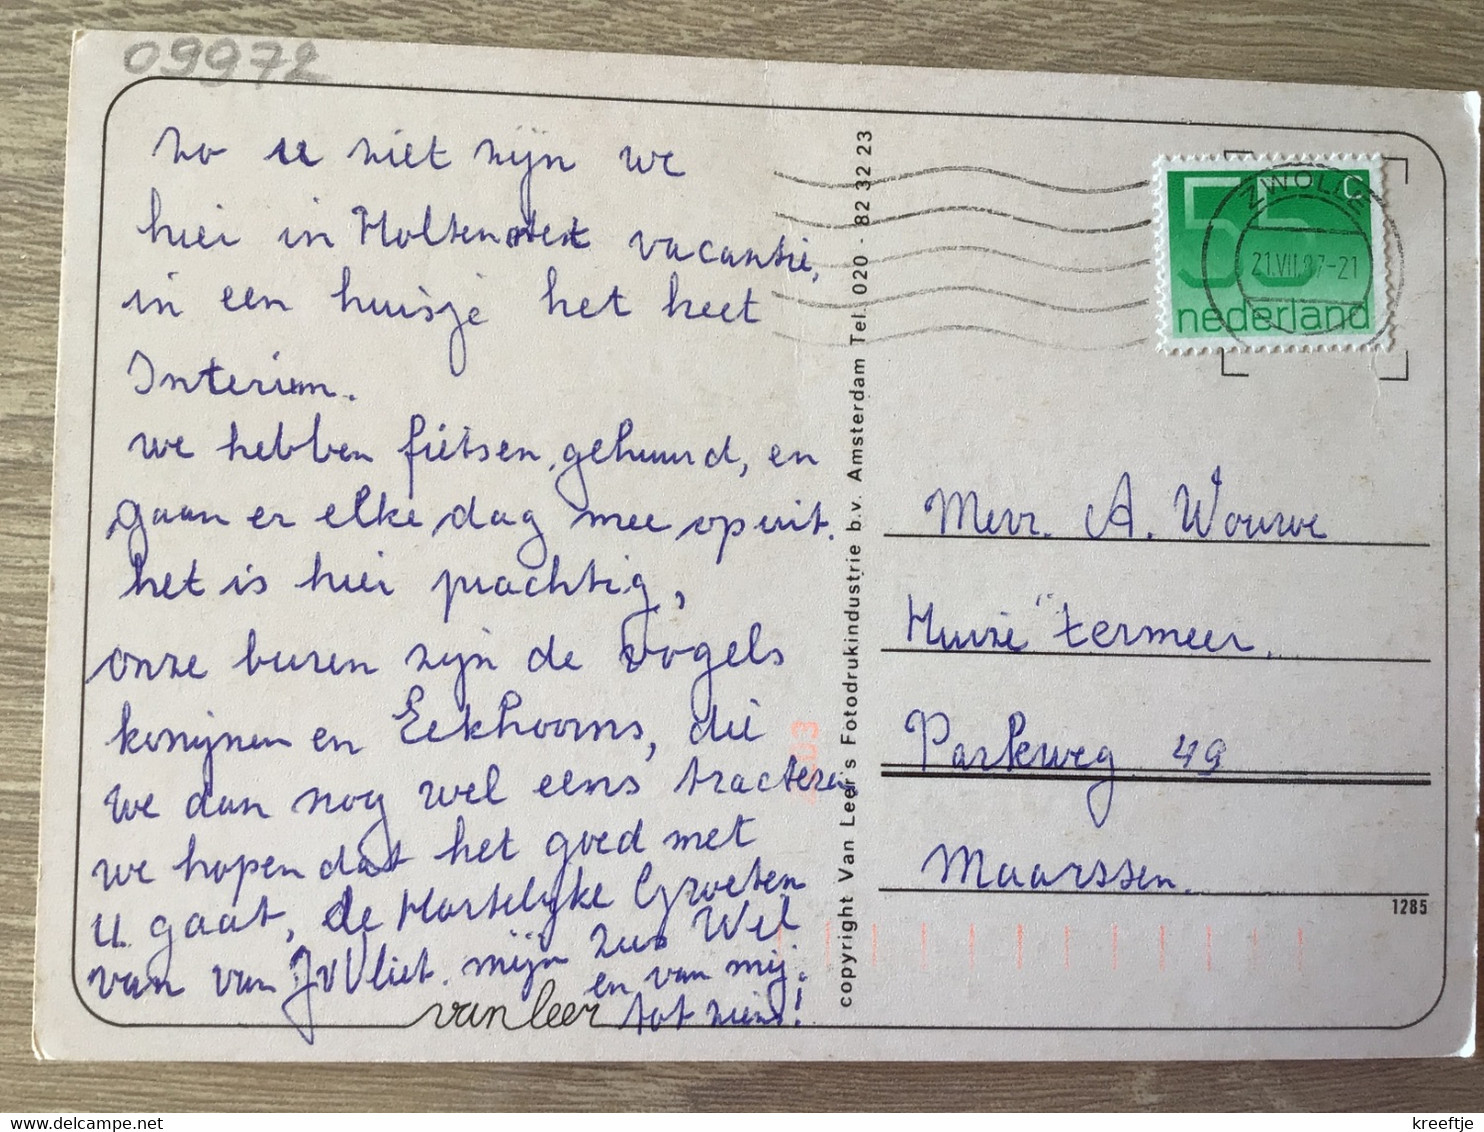 09972
zo u ziet zijn we
hier in Holten met vacantie,
in een huisje het heet
Interim.
we hebben fietsen gehuurd, en
gaan er elke dag mee op uit.
het is hier prachtig,
onze buren zijn de vogels
konijnen en Eekhoorns, die
we dan nog wel eens tracteren
we hopen dat het goed met
u gaat, de Hartelijke Groeten
van van J v Vliet. mijn zus Wel
en van mij.
tot ziens!
van leer
copyright Van Leer's Fotodrukindustrie b.v. Amsterdam Tel. 020 - 82 32 23
55 C
nederland
ZWOLLE
21.VII.87-21
Mevr. A. Wouwe
Huize "termeer.
Parkweg 49
Maarssen.
1285
kreeftje